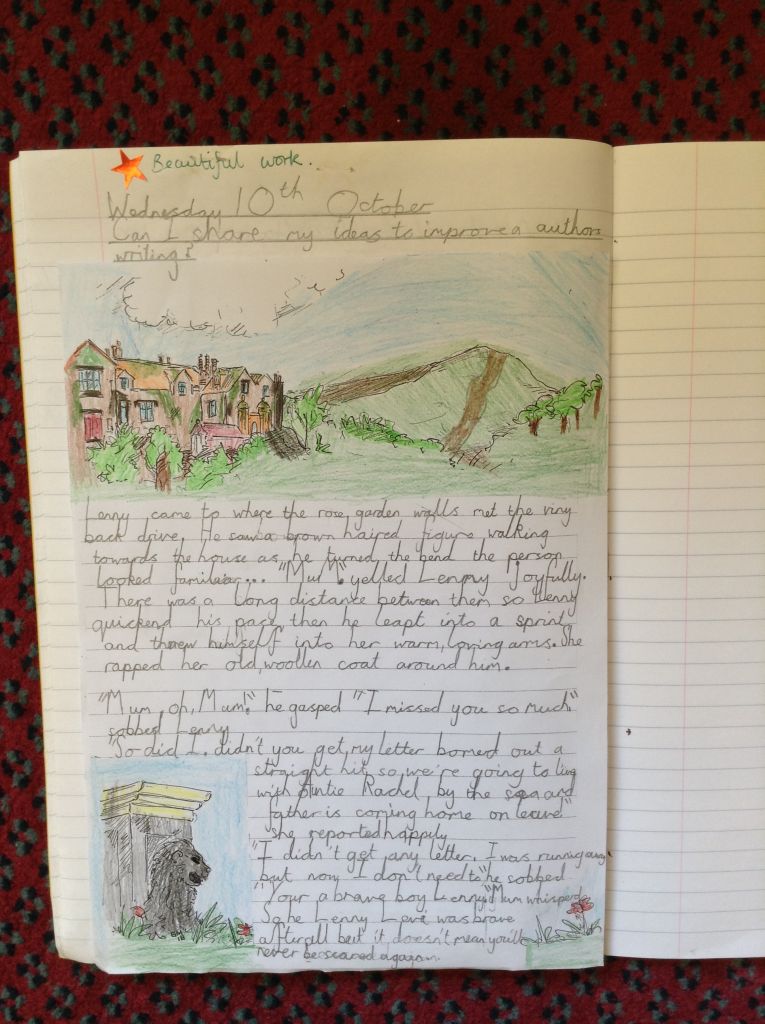 Beautiful work.
Wednesday 10th October
Can I share my ideas to improve a authors
writing?
Lenny came to where the rose garden walls met the viny
back drive. He saw a brown haired figure walking
towards the house as he turned the bend the person
looked familiar... "Mum" yelled Lenny joyfully.
There was a long distance between them so Lenny
quickend his pace then he leapt into a sprint
and threw himself into her warm, loving arms. She
rapped her old, woollen coat around him.
"Mum, oh, Mum!" he gasped "I missed you so much"
sobbed Lenny
"So did I. didn't you get my letter bomed out a
straight hit so we're going to live
with Antie Rachel by the sea and
father is coming home on leave"
she reported happily
"I didn't get any letter. I was running away
but now I don't need to" he sobbed
"Your a brave boy Lenny" Mum whisperd
So he Lenny Levi was brave
afterall but it doesn't mean you'll
never be scared again.